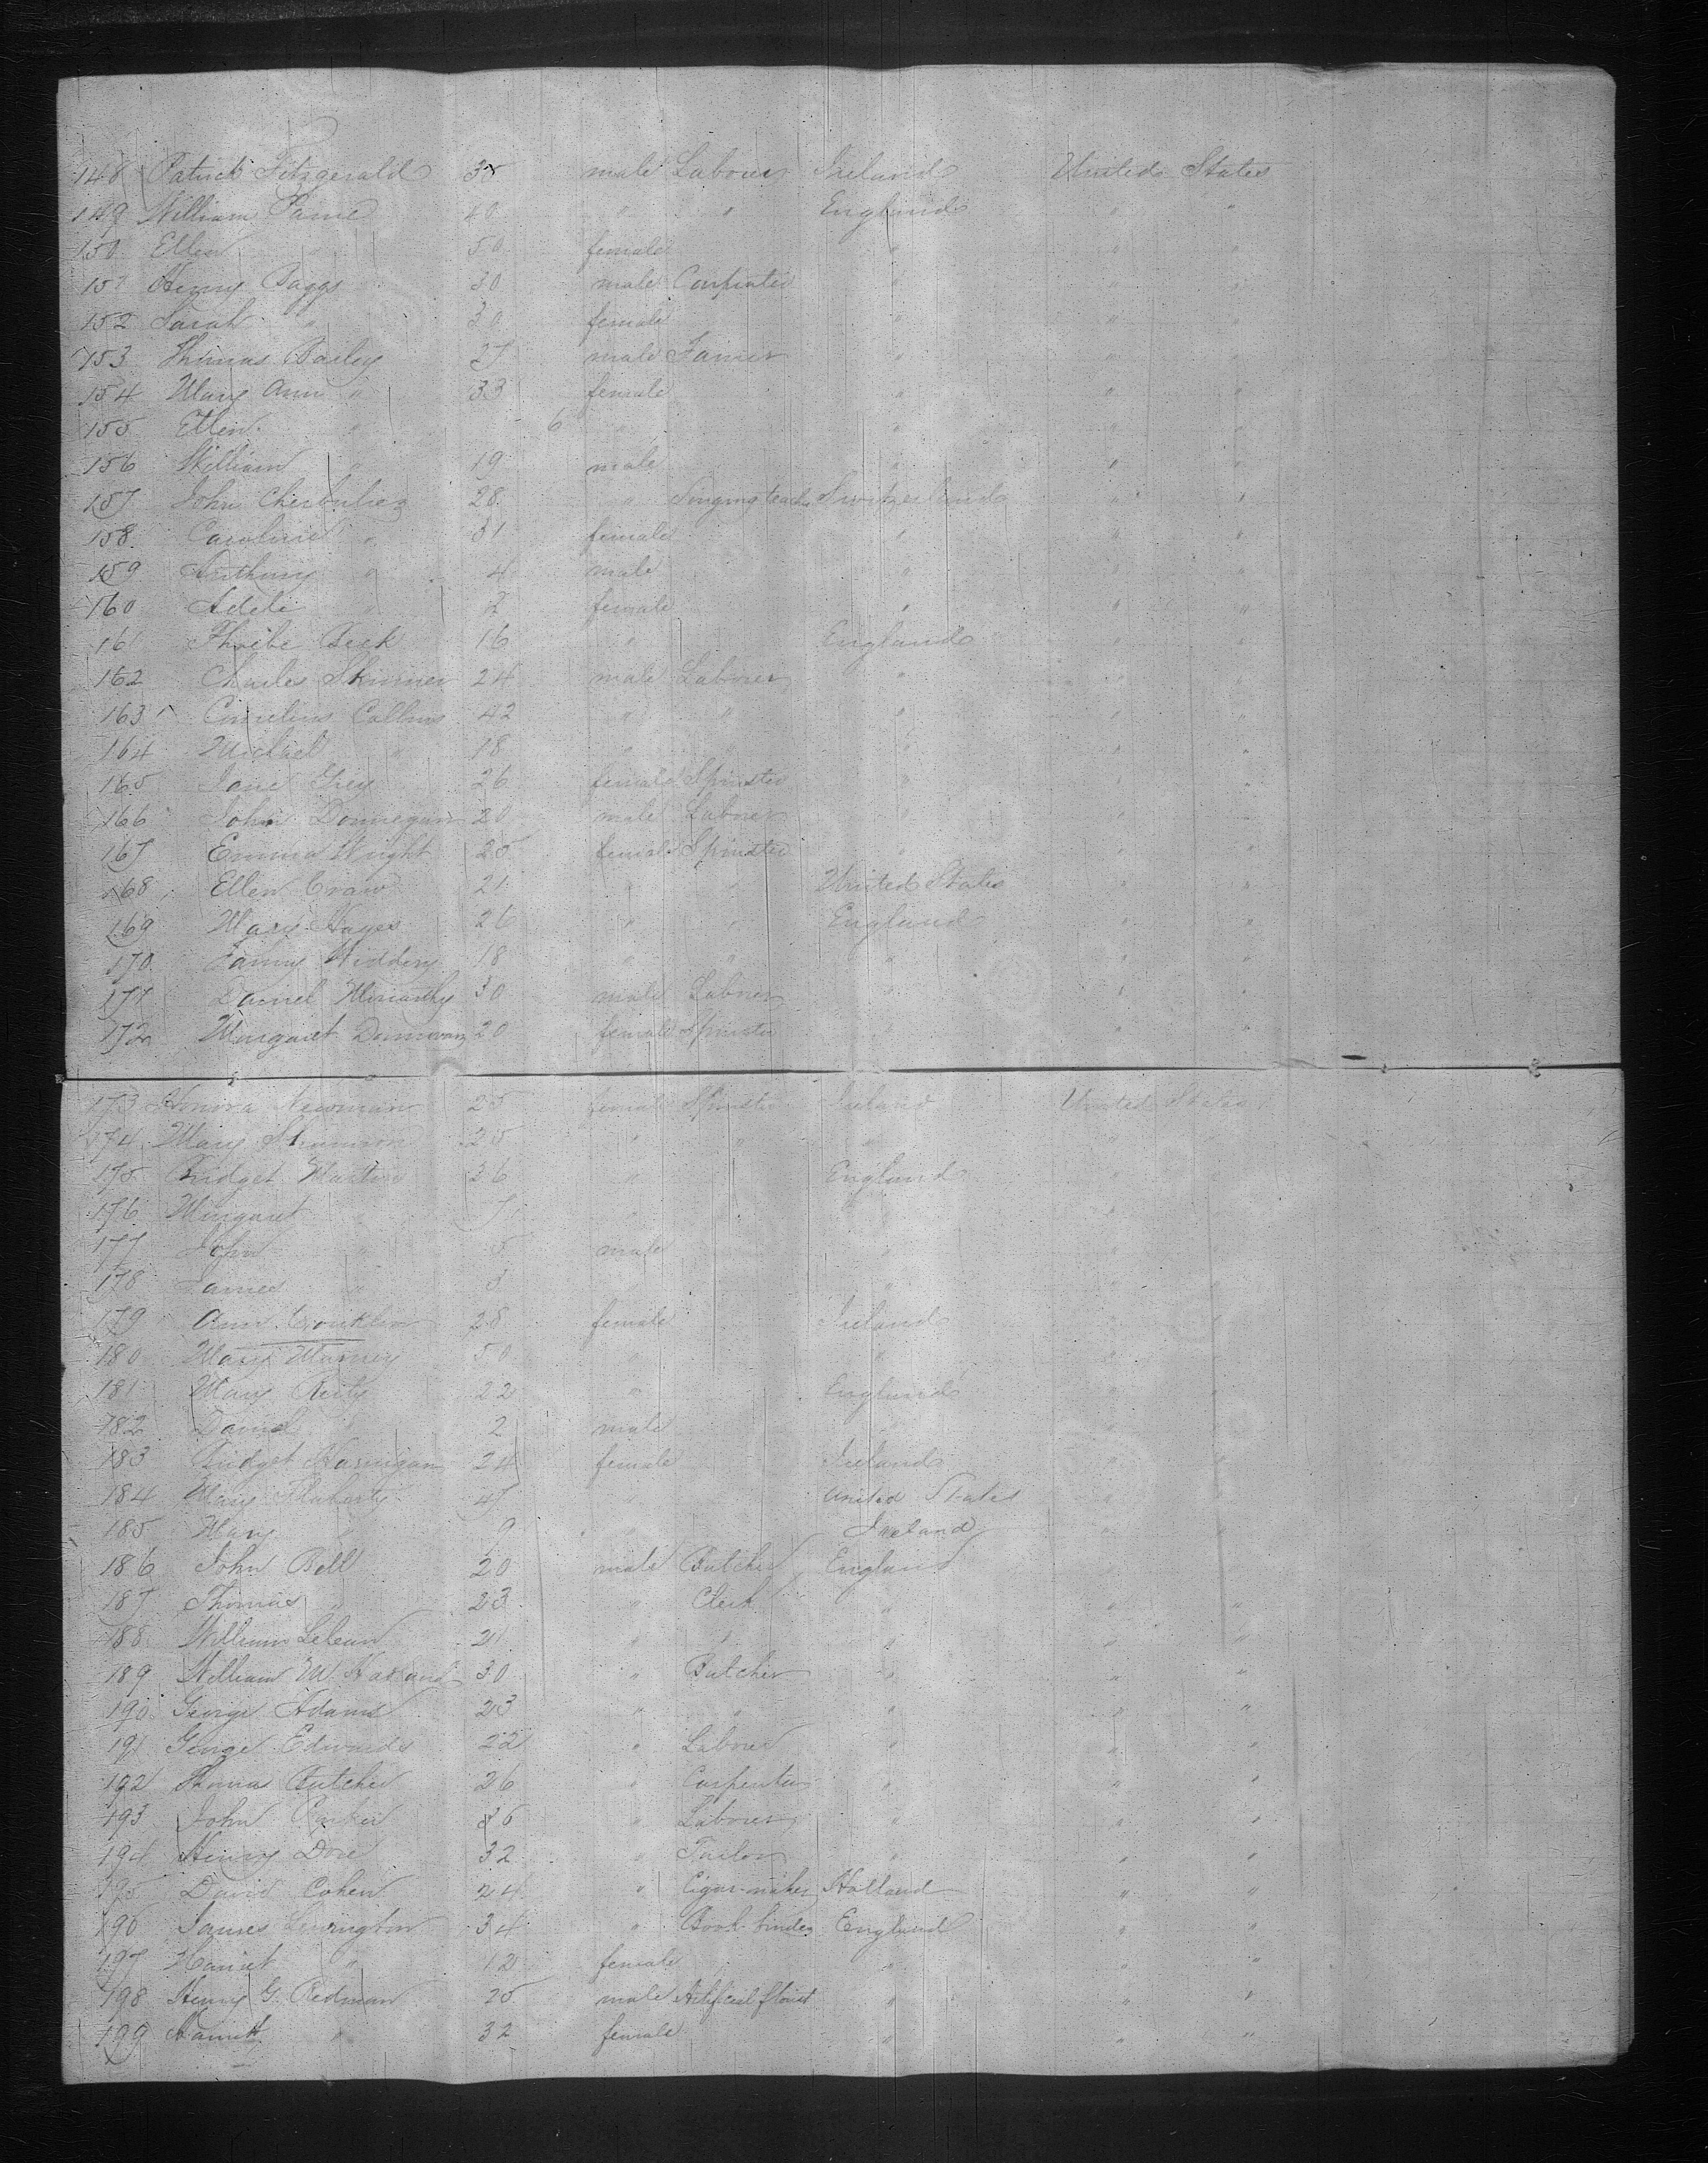 148 Patrick Fitzgerald 35 male Laborer Ireland United States
149 William Paine 40 " " England " "
150 Ellen " 50 female " " "
151 Henry Baggs 30 male Carpenter " " "
152 Sarah " 30 female " " "
153 Thomas Bailey 27 male Farmer " " "
154 Mary Ann " 33 female " " "
155 Ellen " 6 " " " "
156 William " 19 male " " "
157 John Cherbuliez 28 " Singing teacher Switzerland " "
158 Caroline " 31 female " " "
159 Anthony " 4 male " " "
160 Adele " 2 female " " "
161 Phoebe Beek 16 " England " "
162 Charles Skinner 24 male Laborer " " "
163 Cornelius Collins 42 " " " " "
164 Michael " 18 " " " " "
165 Jane Grey 26 female Spinster " " "
166 John Donnegan 20 male Laborer " " "
167 Emma Wright 25 female Spinster " " "
168 Ellen Craw 21 " " United States " "
169 Mary Hayes 26 " " England " "
170 Fanny Widdery 18 " " " " "
171 Daniel Moriarthy 30 male Laborer " " "
172 Margaret Donnovan 20 female Spinster " "
173 Honora Newman 25 female Spinster Ireland United States
174 Mary Shannon 25 " " " " "
175 Bridget Martin 36 " England " "
176 Margaret " 7 " " " "
177 John " 5 male " " "
178 James " 3 " " " "
179 Ann Conklin 28 female Ireland " "
180 Mary Murney 50 " " " "
181 Mary Reily 22 " England " "
182 Daniel " 2 male " " "
183 Bridget Hannigan 24 female Ireland " "
184 Mary Flaharty 47 " United States " "
185 Mary " 9 " Ireland " "
186 John Bell 20 male Butcher England " "
187 Thomas " 23 " Clerk " " "
188 William Lelean 21 " " " " "
189 William W. 30 " Butcher " " "
190 George Adams 23 " " " " "
191 George Edwards 22 " Laborer " " "
192 Thomas Butcher 26 " Carpenter " " "
193 John Parker 36 " Laborer " " "
194 Henry Dore 32 " Tailor " " "
195 David Cohen 24 " Cigar-maker Holland " "
196 James Levington 34 " Book-binder England " "
197 Harriet " 12 female " " "
198 Henry G. Redman 25 male Artificial florist " " "
199 Harriett " 32 female " " "